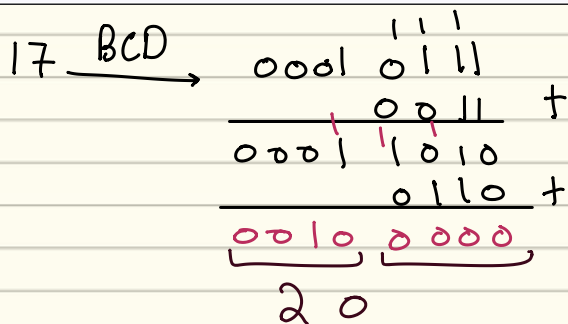 1 1 1
17 BCD → 0001 0111
0011 +
1 1 1
0001 1010
0110 +
0010 0000
2 0